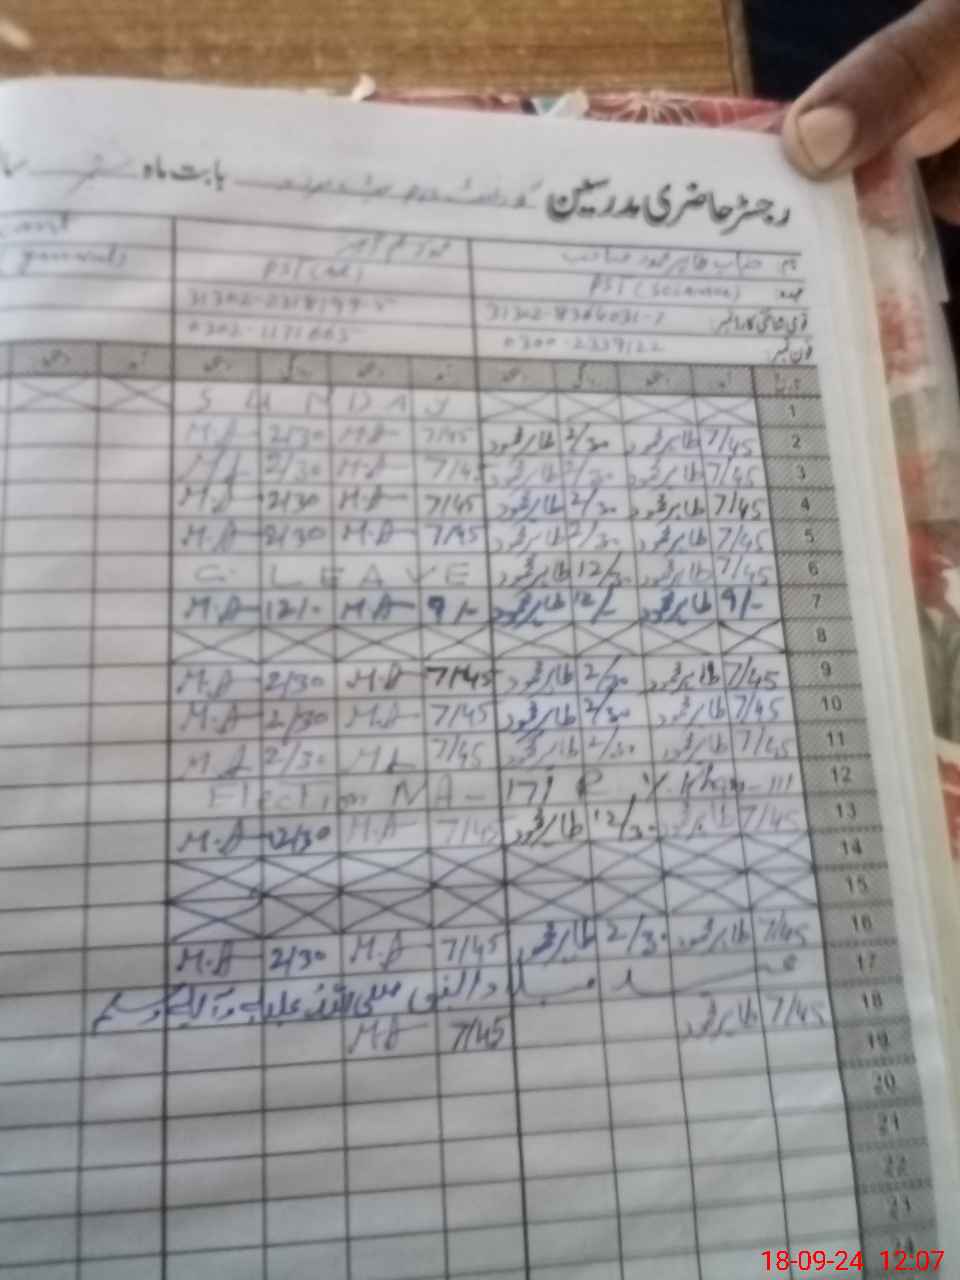 رجسٹر حاضری مدرسین بابت ماہ ستمبر
نام: جناب طاہر محمود صاحب
عہدہ: PST (Science) PST (Art) (general)
قومی شناختی کارڈ نمبر:
فون نمبر: 0300-2339122
1 S U N D A Y
2 7/45 طاہر محمود 2/30 طاہر محمود 7/45 M.A 2/30 M.A
3 7/45 طاہر محمود 2/30 طاہر محمود 7/45 M.A 2/30 M.A
4 7/45 طاہر محمود 2/30 طاہر محمود 7/45 M.A 2/30 M.A
5 7/45 طاہر محمود 2/30 طاہر محمود 7/45 M.A 2/30 M.A
6 7/45 طاہر محمود 12/30 طاہر محمود C. LEAVE
7 9/- طاہر محمود 12/- طاہر محمود 9/- M.A 12/- M.A
8
9 7/45 طاہر محمود 2/30 طاہر محمود 7/45 M.A 2/30 M.A
10 7/45 طاہر محمود 2/30 طاہر محمود 7/45 M.A 2/30 M.A
11 7/45 طاہر محمود 2/30 طاہر محمود 7/45 M.A 2/30 M.A
12 Election NA-171 R.Y.Khan-III
13 7/45 طاہر محمود 12/30 طاہر محمود 7/45 M.A 12/30 M.A
14
15
16 7/45 طاہر محمود 2/30 طاہر محمود 7/45 M.A 2/30 M.A
17 عید میلاد النبی صلی اللہ علیہ وآلہ وسلم
18 7/45 طاہر محمود 7/45 M.A
19
20
21
22
23
24
18-09-24 12:07